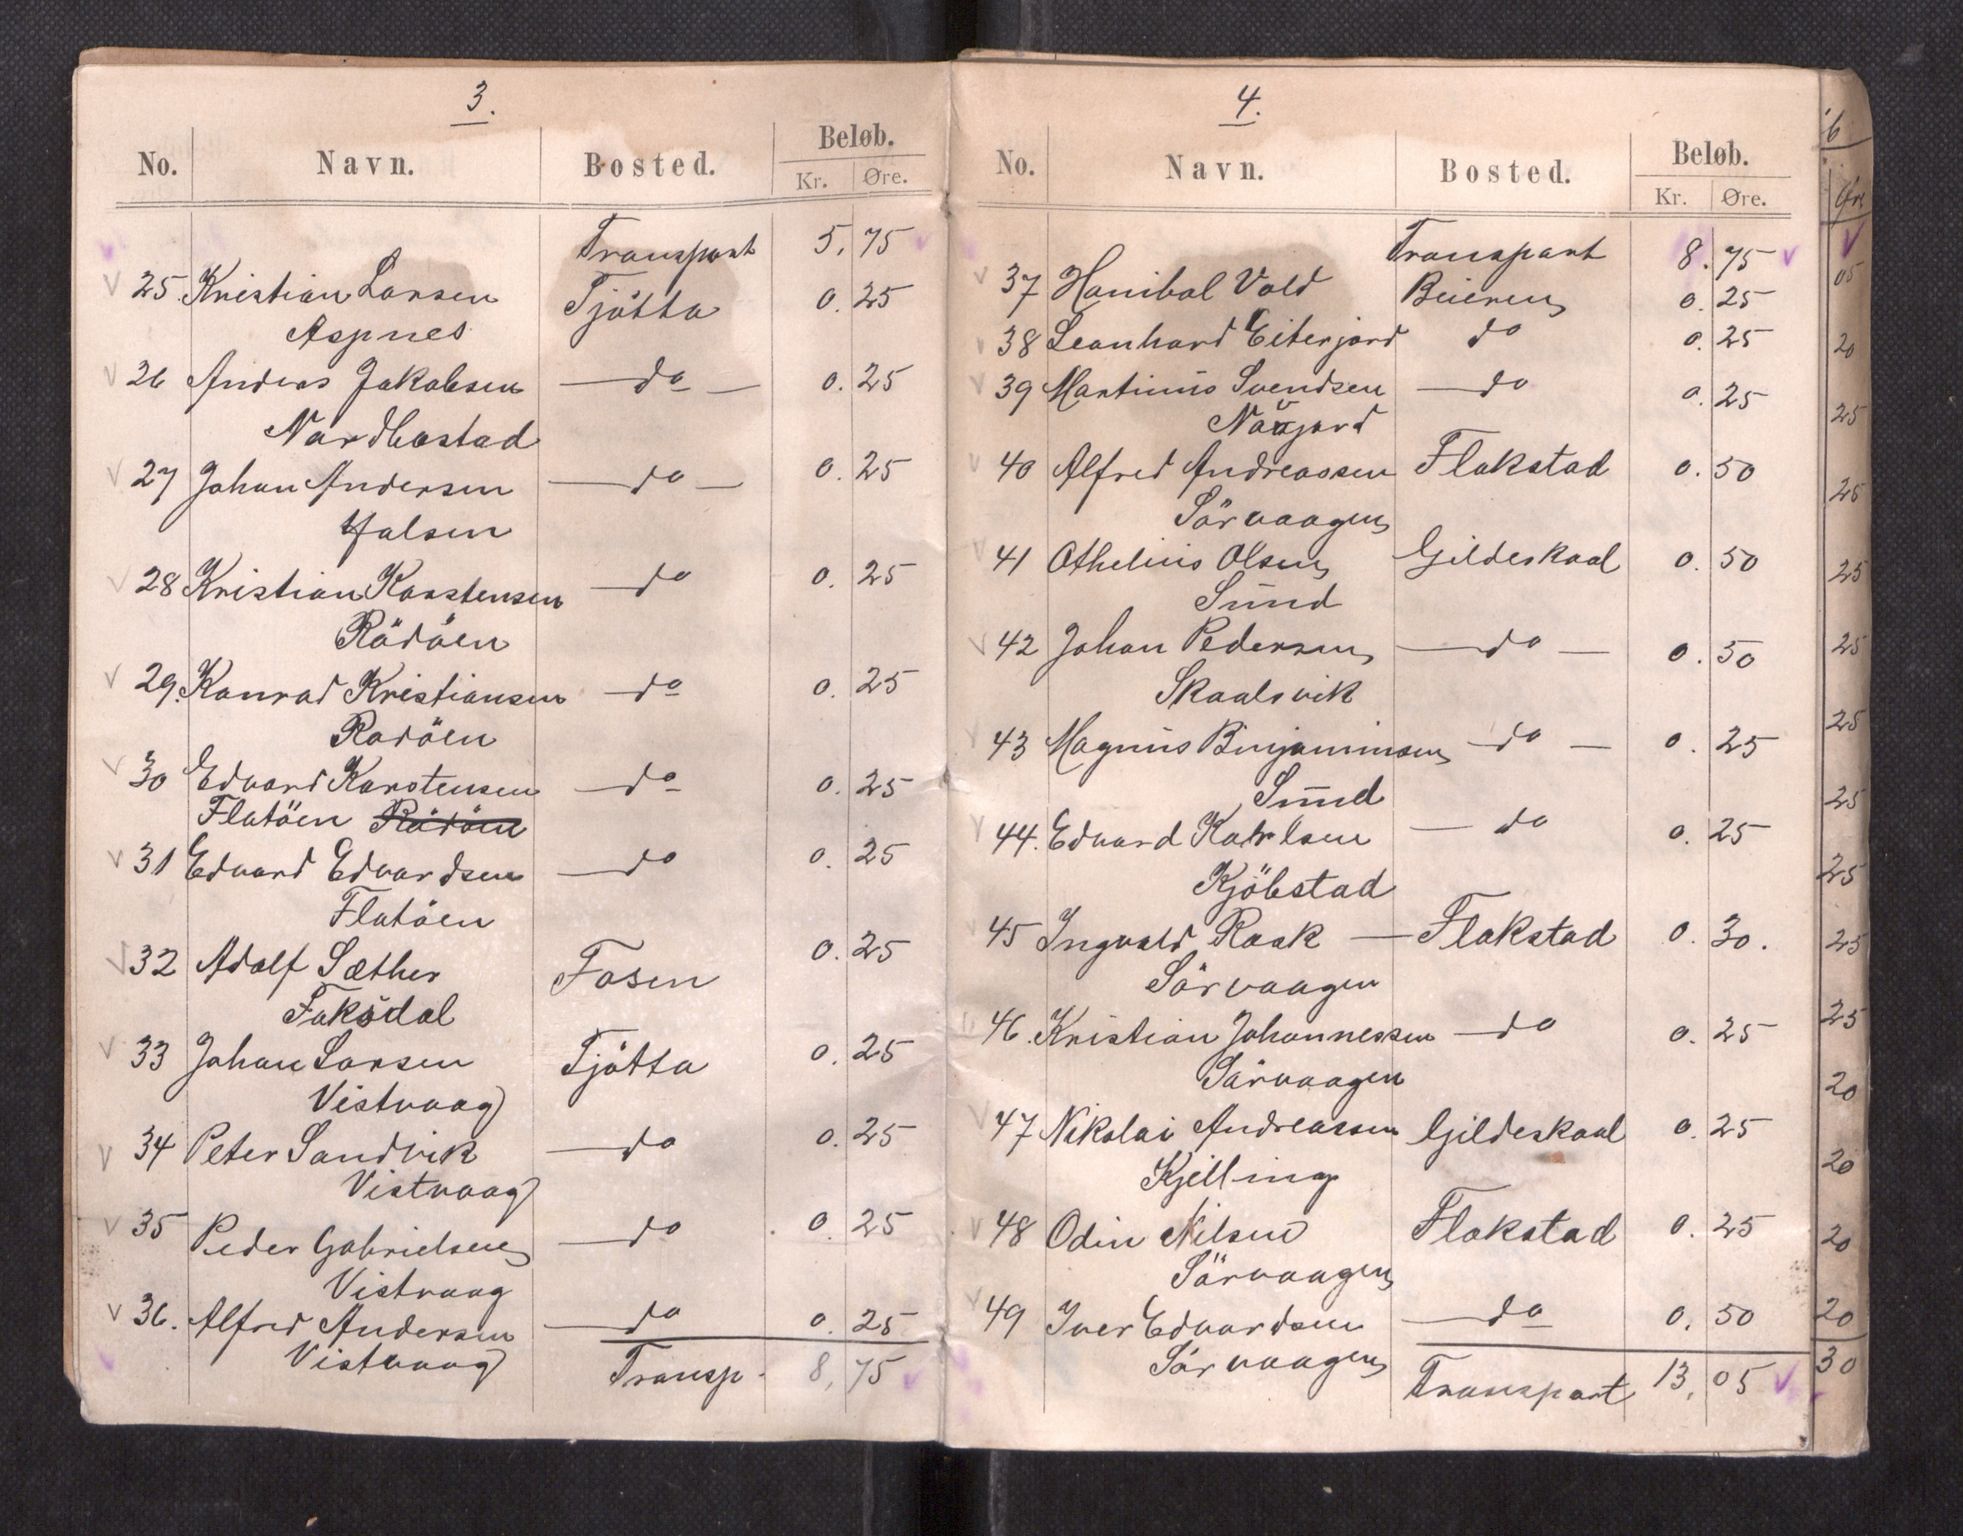 3.
No. Navn. Bosted. Beløb.
Kr. Øre.
Transport 5. 75
25. Kristian Larsen Tjötta 0. 25
Aspnes
26 Anders Jakobsen — do — 0. 25
Nordbostad
27 Johan Andersen — do — 0. 25
Halsen
28 Kristian Karstensen — do 0. 25
Rödöen
29. Konrad Kristiansen — do 0. 25
Rodöen
30 Edvard Karstensen — do 0. 25
Flatöen Rödöen
31 Edvard Edvardsen — do 0. 25
Flatöen
32 Adolf Sæther Fosen 0. 25
Faksdal
33 Johan Larsen Tjötta 0. 25
Vistvaag
34 Peter Sandvik — do 0. 25
Vistvaag
35 Peder Gabrielsen — do 0. 25
Vistvaag
36. Alfred Andersen — do 0. 25
Vistvaag Transp. 8, 75
4.
No. Navn. Bosted. Beløb.
Kr. Øre.
Transport 8. 75
37 Hanibal Vold Beieren 0. 25
38 Leonhard Eiterjord do 0. 25
39 Martinus Svendsen — do 0. 25
Növjord
40 Alfred Andreassen Flakstad 0. 50
Sörvaagen
41 Othelius Olsen Gildeskaal 0. 50
Sund
42 Johan Pedersen — do — 0. 50
Skaalsvik
43 Magnus Binjaminsen — do — 0. 25
Sund
44. Edvard Karlsen — do 0. 25
Kjöbstad
45 Ingvald Rask — Flakstad 0. 30.
Sörvaagen
46. Kristian Johannessen — do 0. 25
Sörvaagen
47 Nikolai Andreassen Gildeskaal 0. 25
Kjelling
48 Odin Nilsen Flakstad 0. 25
Sörvaagen
49 Iver Edvardsen — do 0. 50
Sörvaagen Transport 13, 05
6
Øre
05
20
25
25
25
25
25
25
25
25
25
20
20
20
20
30